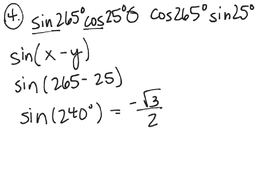 ④. sin265°cos25° cos265°sin25°
sin(x-y)
sin(265-25)
sin(240°) = -√3/2